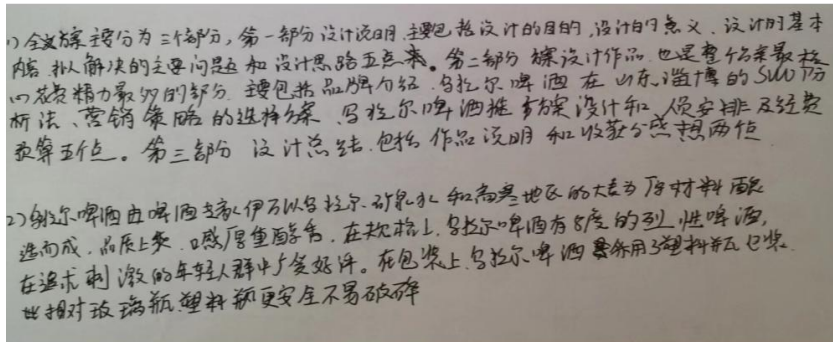 1)全文方案主要分为三个部分,第一部分设计说明,主要包括设计的目的,设计的意义,设计的基本
内容,拟解决的主要问题和设计思路五点来。第二部分方案设计作品,也是整个方案最核
心花费精力最多的部分,主要包括品牌介绍,乌拉尔啤酒在山东淄博的SWOT分
析法、营销策略的选择方案、乌拉尔啤酒推广方案设计和人员安排及经费
预算五个点。第三部分设计总结,包括作品说明和收获与感想两个点
2)乌拉尔啤酒由啤酒专家伊万以乌拉尔矿泉水和高寒地区的大麦为原材料酿
造而成,品质上乘,口感厚重醇香,在规格上,乌拉尔啤酒有8度的烈性啤酒,
在追求刺激的年轻人群中广受好评。在包装上,乌拉尔啤酒采用了塑料瓶包装,
比相对玻璃瓶,塑料瓶更安全不易破碎